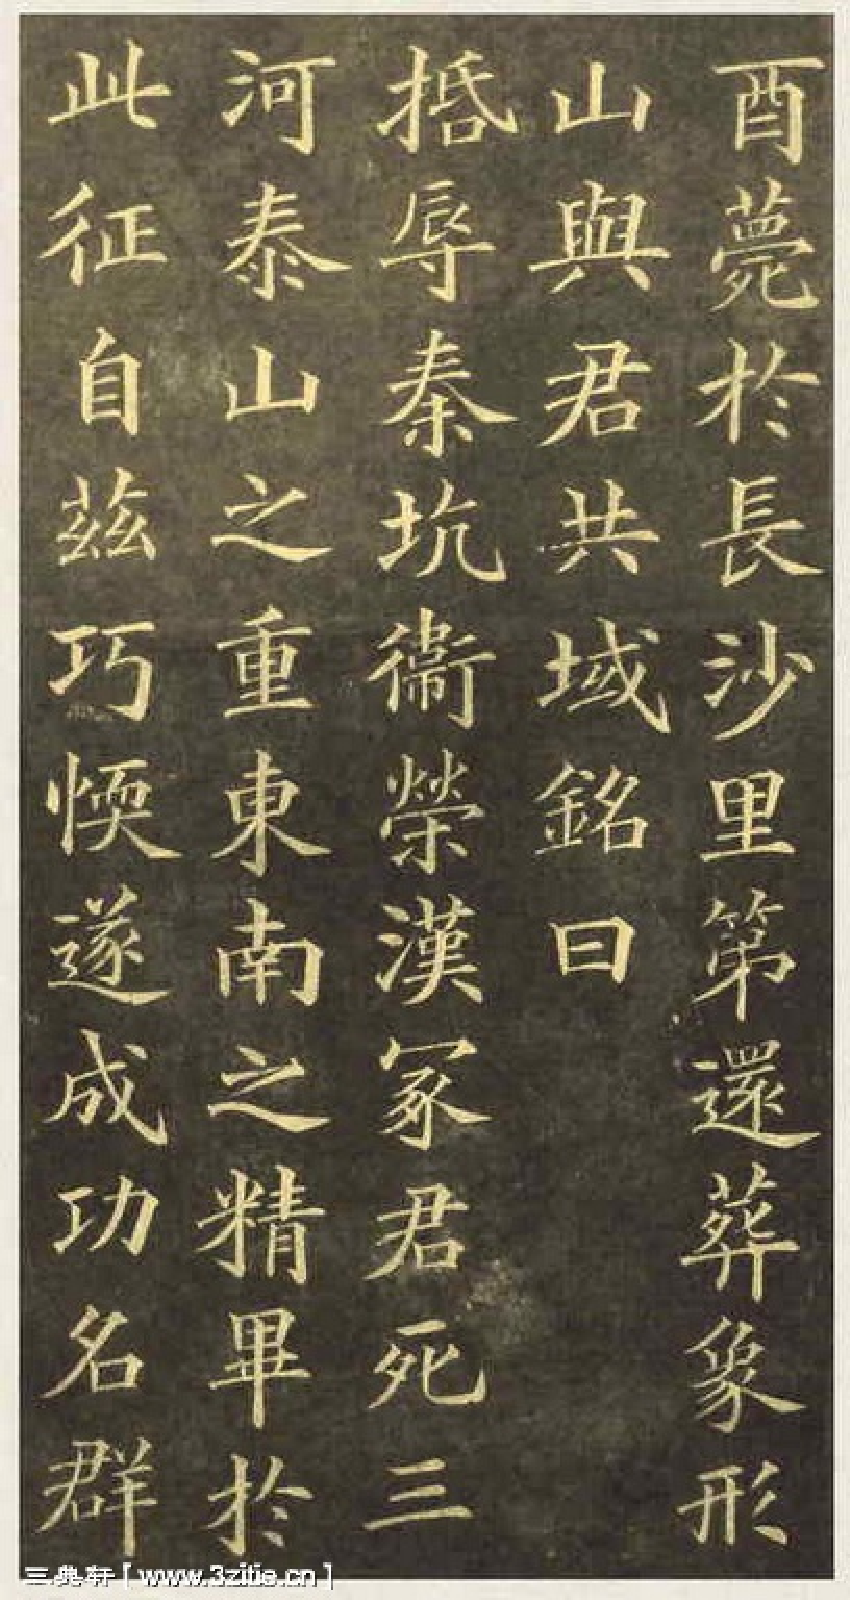 酉薨於長沙里第還葬象形
山與君共域銘曰
捪辱秦坑衞榮漢冢君死三
河泰山之重東南之精畢於
此征自茲巧愞遂成功名群
三典轩 [ www.3zitie.cn ]